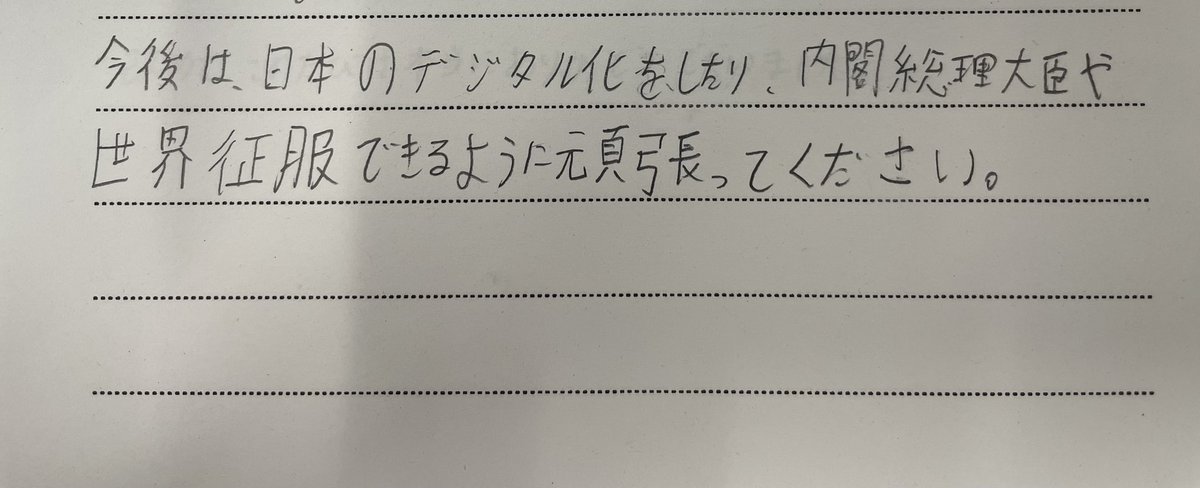 今後は、日本のデジタル化をしたり、内閣総理大臣や
世界征服できるように頑張ってください。